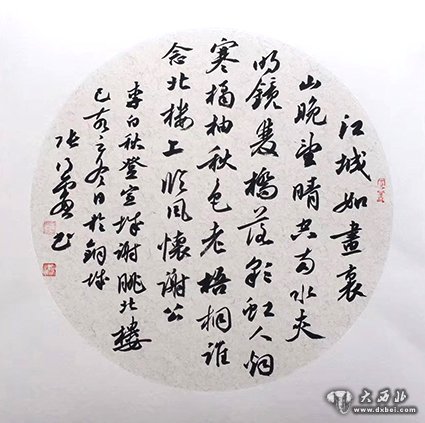 江城如畫裏
山晚望晴空两水夹
明鏡雙橋落彩虹人烟
寒橘柚秋色老梧桐誰
念北楼上临风懷謝公
李白秋登宣城謝朓北樓
己亥冬日於銅城
张书
大西北
www.dxbei.com